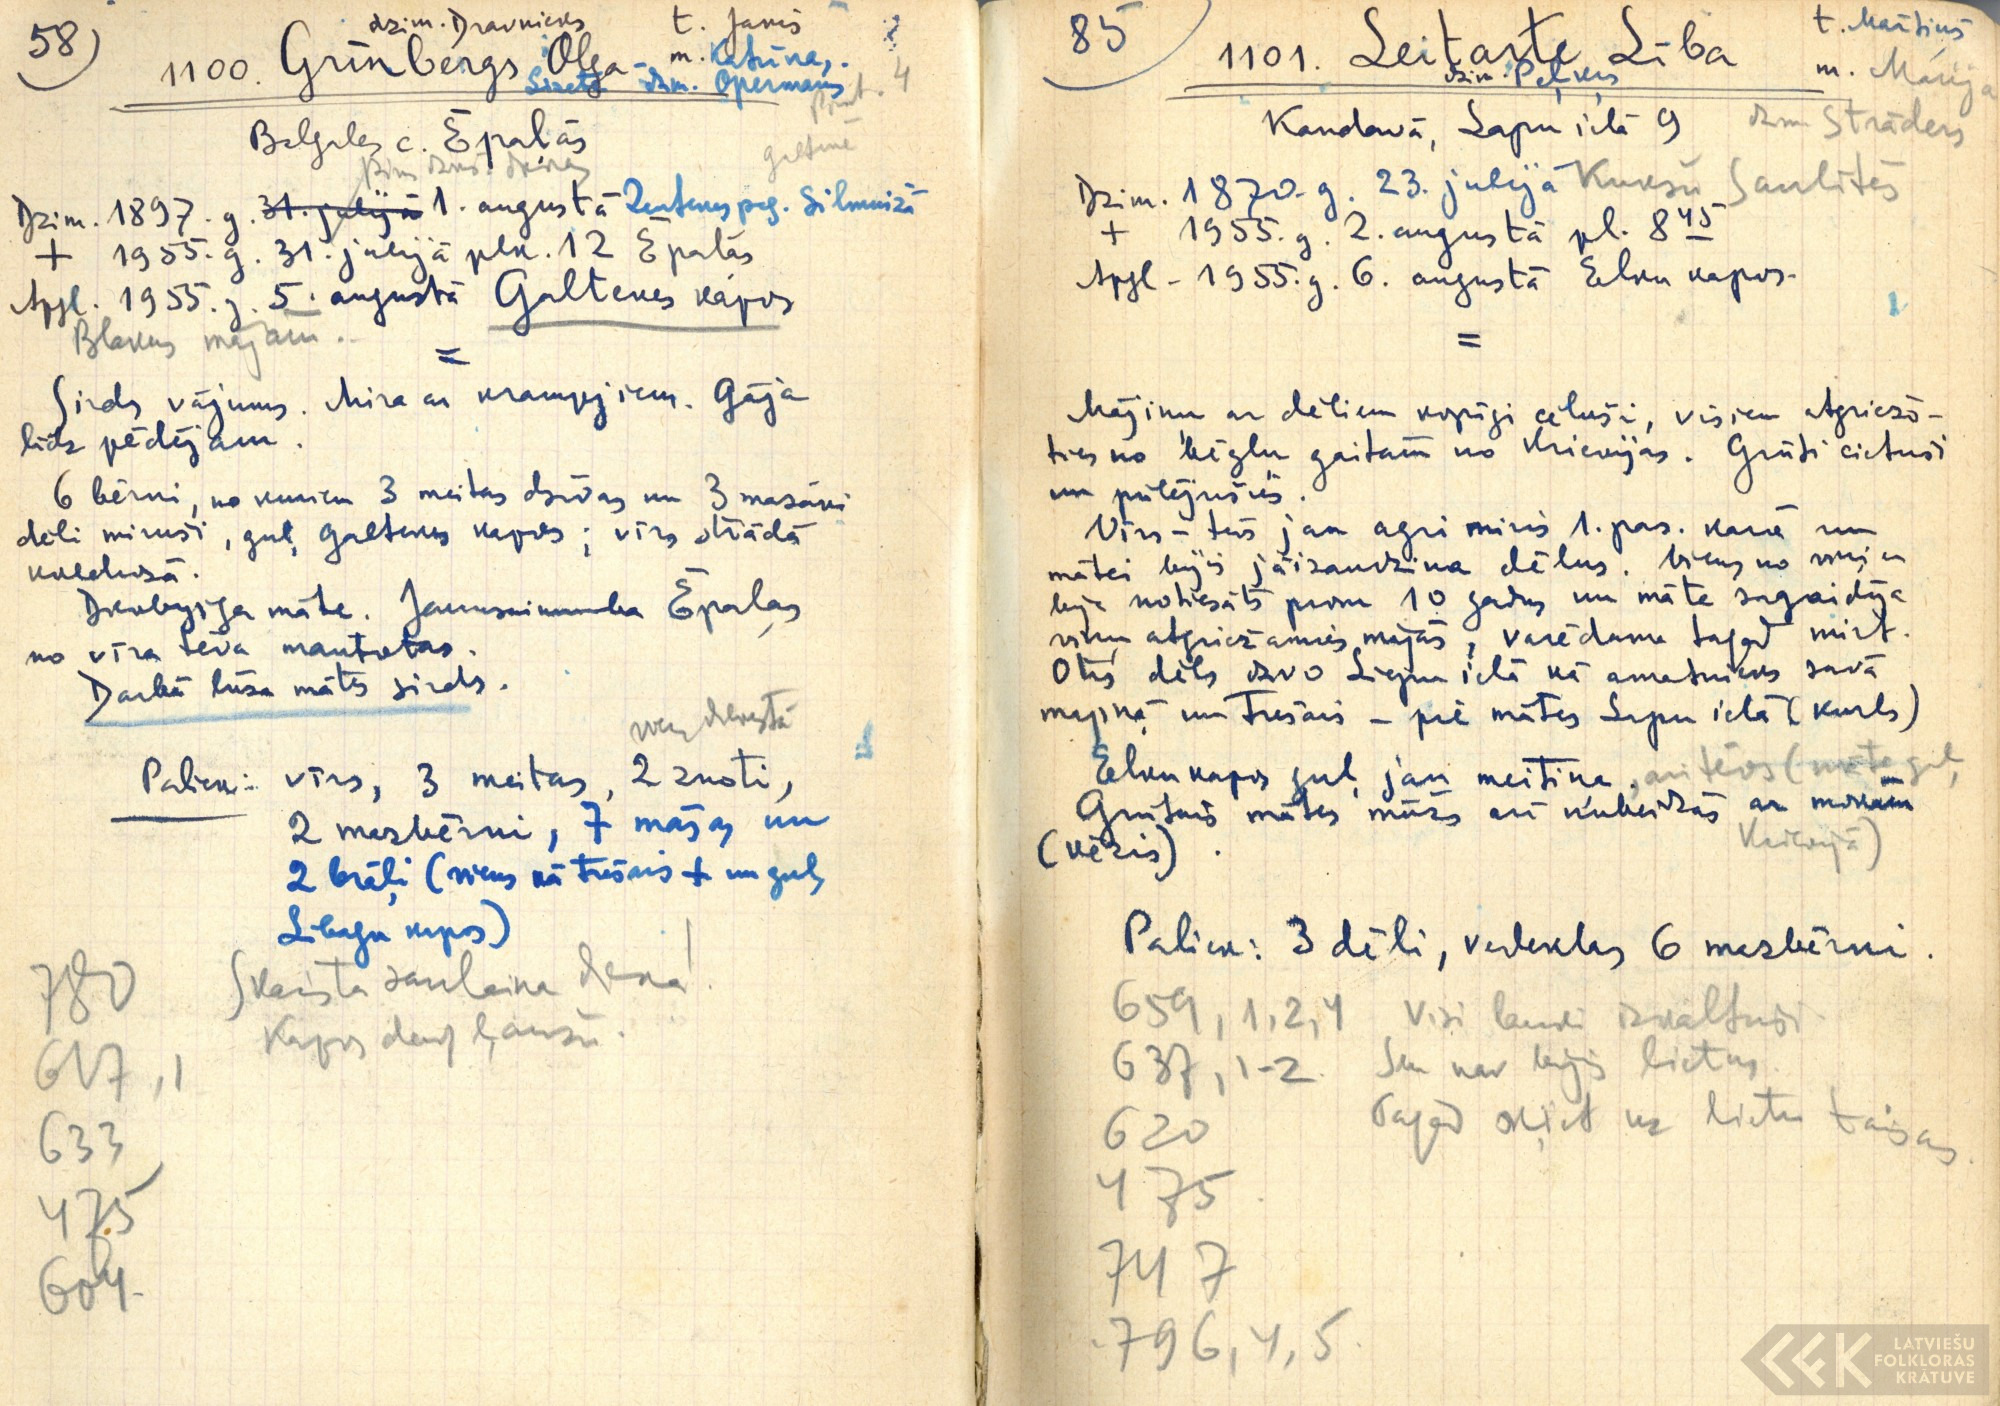 58)
dzim. Dravnieks
t. Janis
1100. Grīnbergs Olga
m. Katrīna,
Lizete dzim. Opermanis
4
Balgales c. Ēpaļās
galtenē
Dzim. 1897. g. 31. jūlijā 1. augustā Zentenes pag. Silmuižā
+ 1955. g. 31. jūlijā plk. 12 Ēpaļās
Apgl. 1955. g. 5. augustā Galtenes kapos
Blakus mājām.
=
Sirds vājums. Mira ar krampjiem. Gāja
līdz pēdējam.
6 bērni, no kuriem 3 meitas dzīvas un 3 mazāki
dēli miruši, guļ Galtenes kapos; vīrs strādā
kolchozā.
Darbīga māte. Jaunsaimnieka Ēpaļas
no vīra tēva mantotas.
Darbā lūza mātes sirds.
Paliek: vīrs, 3 meitas, 2 znoti,
2 mazbērni, 7 māsas un
2 brāļi (viens kā trešais + un guļ
Lībagu kapos)
780
Skaista saulaina diena!
Kapos daudz ļaužu.
617,1
633
475
604.
85)
1101. Leitarte Lība
dzim. Peļķis
t. Mārtiņš
m. Marija
dzim Strāders
Kandavā, Lapu ielā 9
Dzim. 1870. g. 23. jūlijā Kukšu Saulītēs
+ 1955. g. 2. augustā pl. 8 45
Apgl - 1955. g. 6. augustā Eļku kapos.
=
Mājiņu ar dēliem kopīgi cēluši, visiem atgriezo-
ties no bēgļu gaitām no Krievijas. Grūti cietuši
un pūlējušies.
Vīrs - tēvs jau agri miris 1. pas. karā un
mātei bijis jāizaudzina dēlus. Viens no viņiem
bija notiesāts prom 10 gadus un māte sagaidīja
viņu atgriežamies mājās, varēdama tagad mirt.
Otrs dēls dzīvo Liepu ielā kā amatnieks savā
mājiņā un trešais - pie mātes Lapu ielā (kurls)
Eļku kapos guļ jau meitiņa, arī tēvs (māte guļ
Krievijā)
Grūtais mātes mūžs arī nobeidzās ar mokām
(vēzis).
Paliek: 3 dēli, vedeklas 6 mazbērni.
659, 1,2,4 Visi lauki izkaltuši
637, 1-2. Sen nav bijis lietus.
620 Tagad šķiet uz lietu taisas.
475
747
796,4,5.
LATVIEŠU
FOLKLORAS
KRĀTUVE